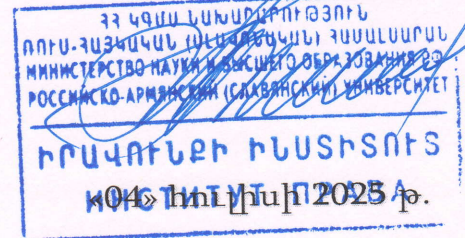 ՀՀ ԿԳՄՍ ՆԱԽԱՐԱՐՈՒԹՅՈՒՆ
ՌՈՒՍ-ՀԱՅԿԱԿԱՆ (ՍԼԱՎՈՆԱԿԱՆ) ՀԱՄԱԼՍԱՐԱՆ
МИНИСТЕРСТВО НАУКИ И ВЫСШЕГО ОБРАЗОВАНИЯ РФ
РОССИЙСКО-АРМЯНСКИЙ (СЛАВЯНСКИЙ) УНИВЕРСИТЕТ
ԻՐԱՎՈՒՆՔԻ ԻՆՍՏԻՏՈՒՏ
ИНСТИТУТ ПРАВА
«04» հուլիսի 2025 թ.